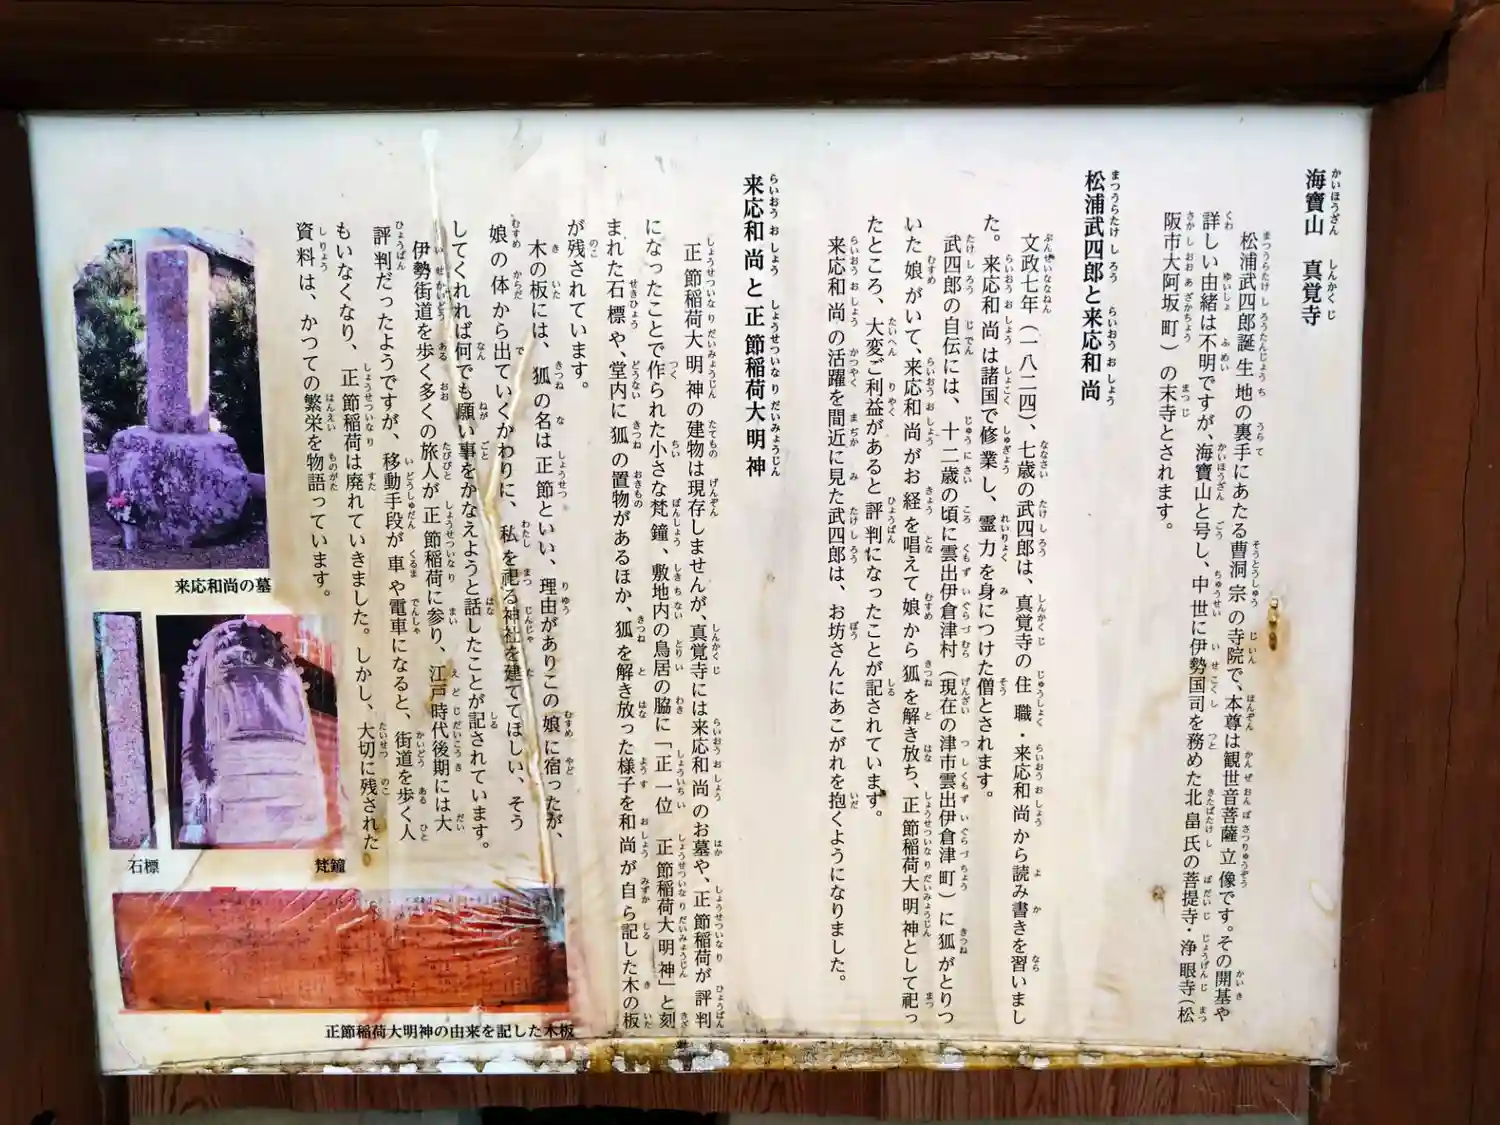 海寶山　真覚寺
松浦武四郎誕生地の裏手にあたる曹洞宗の寺院で、本尊は観世音菩薩立像です。その開基や
詳しい由緒は不明ですが、海寶山と号し、中世に伊勢国司を務めた北畠氏の菩提寺・浄眼寺(松
阪市大阿坂町）の末寺とされます。
松浦武四郎と来応和尚
文政七年（一八二四）、七歳の武四郎は、真覚寺の住職・来応和尚から読み書きを習いまし
た。来応和尚は諸国で修業し、霊力を身につけた僧とされます。
武四郎の自伝には、十二歳の頃に雲出伊倉津村（現在の津市雲出伊倉津町）に狐がとりつ
いた娘がいて、来応和尚がお経を唱えて娘から狐を解き放ち、正節稲荷大明神として祀っ
たところ、大変ご利益があると評判になったことが記されています。
来応和尚の活躍を間近に見た武四郎は、お坊さんにあこがれを抱くようになりました。
来応和尚と正節稲荷大明神
正節稲荷大明神の建物は現存しませんが、真覚寺には来応和尚のお墓や、正節稲荷が評判
になったことで作られた小さな梵鐘、敷地内の鳥居の脇に「正一位　正節稲荷大明神」と刻
まれた石標や、堂内に狐の置物があるほか、狐を解き放った様子を和尚が自ら記した木の板
が残されています。
木の板には、狐の名は正節といい、理由がありこの娘に宿ったが、
娘の体から出ていくかわりに、私を祀る神社を建ててほしい、そう
してくれれば何でも願い事をかなえようと話したことが記されています。
伊勢街道を歩く多くの旅人が正節稲荷に参り、江戸時代後期には大
評判だったようですが、移動手段が車や電車になると、街道を歩く人
もいなくなり、正節稲荷は廃れていきました。しかし、大切に残された
資料は、かつての繁栄を物語っています。
来応和尚の墓
石標
梵鐘
正節稲荷大明神の由来を記した木板